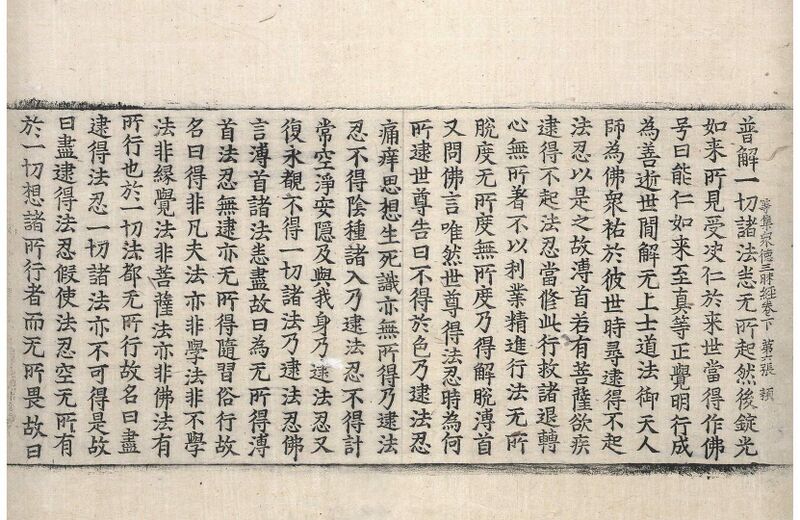 等集衆德三昧經卷下 第六張 頼
普解一切諸法悉无所起然後錠光
如来所見受决仁於来世當得作佛
号曰能仁如来至真等正覺明行成
為善逝世間解无上士道法御天人
師為佛衆祐於彼世時尋逮得不起
法忍以是之故溥首若有菩薩欲疾
逮得不起法忍當修此行救諸退轉
心無所著不以利業精進行法无所
脫度无所度無所度乃得解脫溥首
又問佛言唯然世尊得法忍時為何
所逮世尊告曰不得於色乃逮法忍
痛痒思想生死識亦無所得乃逮法
忍不得陰種諸入乃逮法忍不得計
常空淨安隱及與我身乃逮法忍又
復永觀不得一切諸法乃逮法忍佛
言溥首諸法悉盡故曰為无所得溥
首法忍無逮亦无所得隨習俗行故
名曰得非凡夫法亦非學法非不學
法非縁覺法非菩薩法亦非佛法有
所行也於一切法都无所行故名曰盡
逮得法忍一切諸法亦不可得是故
曰盡逮得法忍假使法忍空无所有
於一切想諸所行者而无所畏故曰